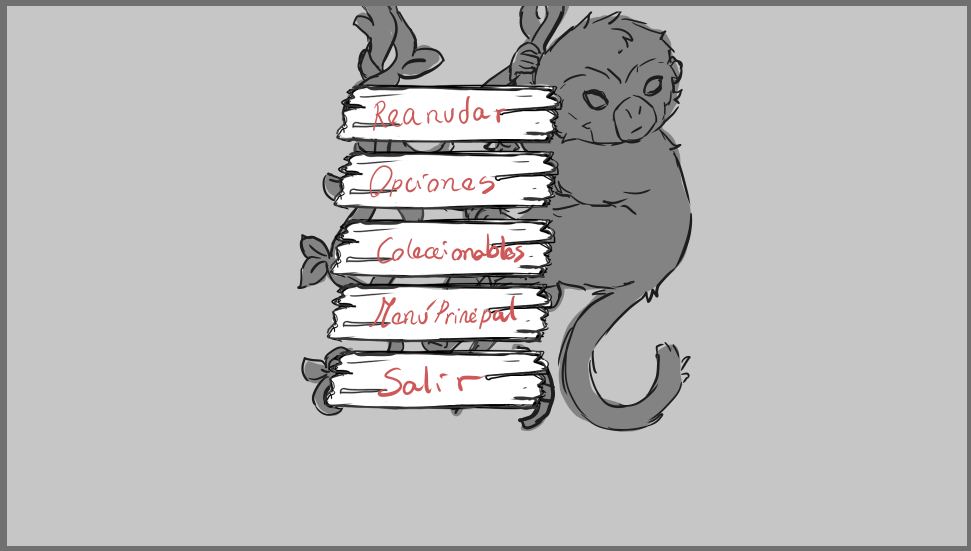 Reanudar
Opciones
Coleccionables
Menú Principal
Salir